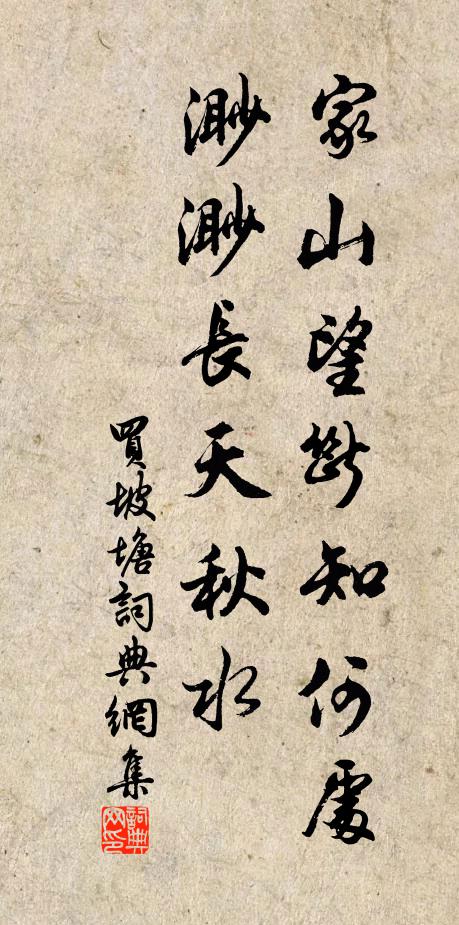 家山望斷知何處
渺渺長天秋水
買坡塘詞典網集
詞典網印